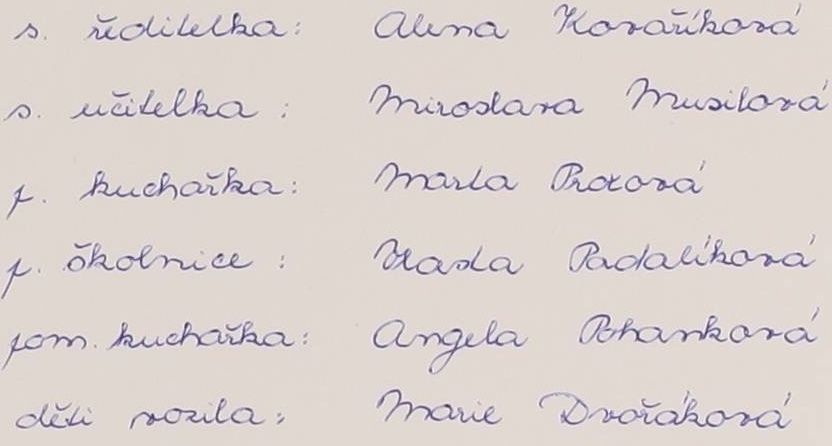 s. ředitelka: Alena Kovaříková
s. učitelka: Miroslava Musilová
p. kuchařka: Marta
p. školnice: Vlasta Padalíková
pom. kuchařka: Angela Pohanková
děti vozila: Marie Dvořáková